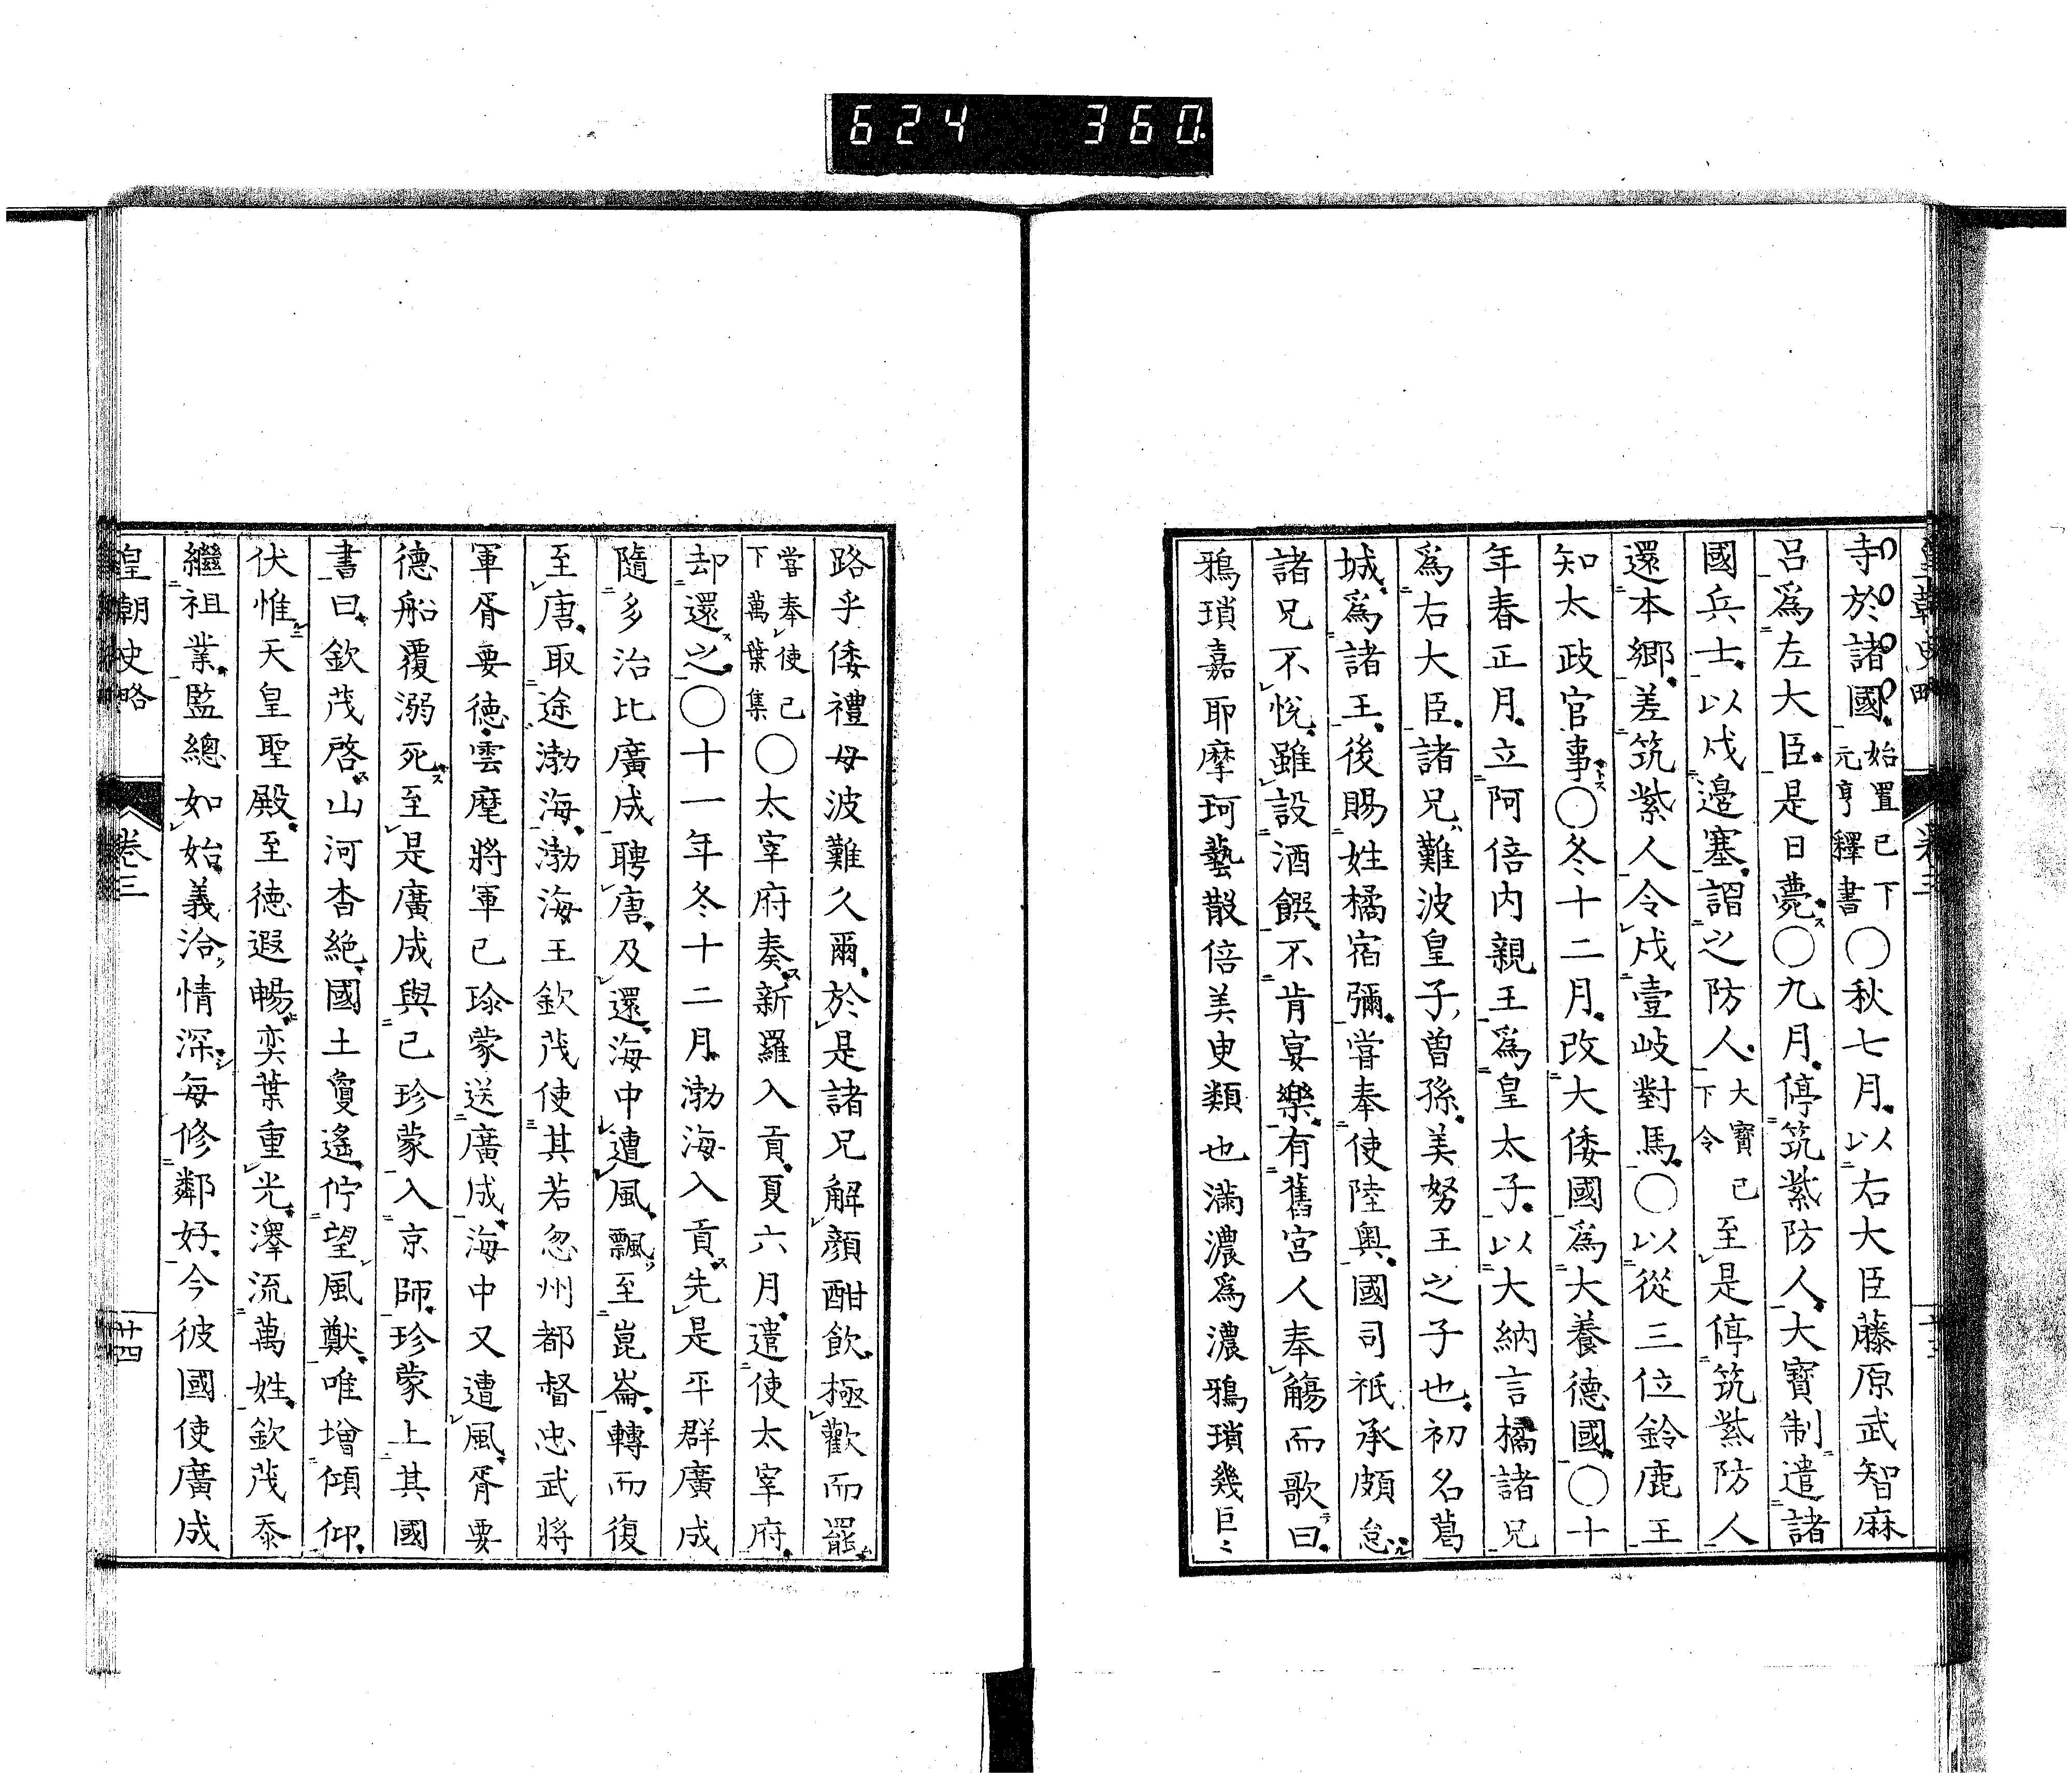 624 360
寺於諸國始置已下元亨釋書〇秋七月以右大臣藤原武智麻
呂爲左大臣是日薨〇九月停筑紫防人大寶制遣諸
國兵士以戍邊塞謂之防人大寶已下令至是停筑紫防人
還本鄉差筑紫人令戍壹岐對馬〇以從三位鈴鹿王
知太政官事〇冬十二月改大倭國爲大養德國〇十
年春正月立阿倍內親王爲皇太子以大納言橘諸兄
爲右大臣諸兄難波皇子曾孫美努王之子也初名葛
城爲諸王後賜姓橘宿彌嘗奉使陸奧國司祇承頗怠
諸兄不悅雖設酒饌不肯宴樂有舊宮人奉觴而歌曰
鴉瑣嘉耶摩珂藝散倍美史類也滿濃爲濃鴉瑣幾巨〻
路乎倭禮母波難久爾於是諸兄解顏酣飲極歡而罷
嘗奉使已下萬葉集〇太宰府奏新羅入貢夏六月遣使太宰府
却還之〇十一年冬十二月渤海入貢先是平群廣成
隨多治比廣成聘唐及還海中遭風飄至崑崙轉而復
至唐取途渤海渤海王欽茂使其若忽州都督忠武將
軍胥要德雲麾將軍已珍蒙送廣成海中又遭風胥要
德船覆溺死至是廣成與已珍蒙入京師珍蒙上其國
書曰欽茂啓山河杳絕國土夐遙佇望風猷唯增傾仰
伏惟天皇聖殿至德遐暢奕葉重光澤流萬姓欽茂忝
繼祖業監總如始義洽情深每修鄰好今彼國使廣成
皇朝史略 卷三 廿四